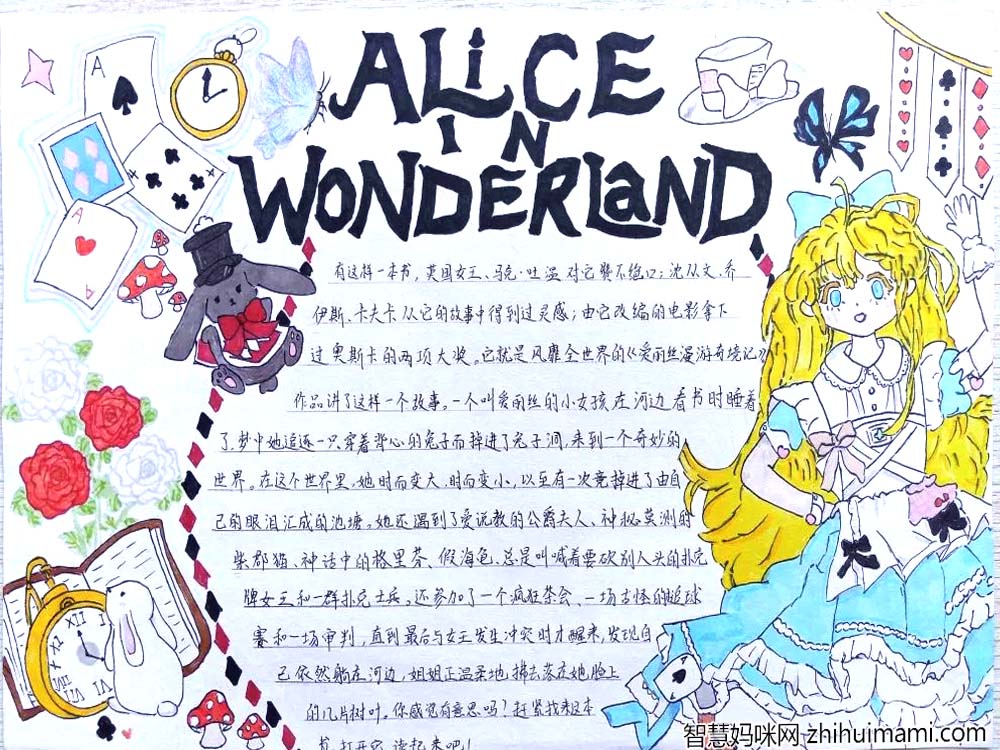 ALiCE
IN
WONDERLaND
A
A
有这样一本书，英国女王、马克·吐温对它赞不绝口；沈从文、乔
伊斯、卡夫卡从它的故事中得到过灵感；由它改编的电影拿下
过奥斯卡的两项大奖。它就是风靡全世界的《爱丽丝漫游奇境记》
作品讲了这样一个故事。一个叫爱丽丝的小女孩在河边看书时睡着
了，梦中她追逐一只穿着背心的兔子而掉进了兔子洞，来到一个奇妙的
世界。在这个世界里，她时而变大，时而变小，以至有一次竟掉进了由自
己的眼泪汇成的池塘。她还遇到了爱说教的公爵夫人、神秘莫测的
柴郡猫、神话中的格里芬、假海龟、总是叫喊着要砍别人头的扑克
牌女王和一群扑克士兵。还参加了一个疯狂茶会、一场古怪的槌球
赛和一场审判，直到最后与女王发生冲突时才醒来，发现自
己依然躺在河边，姐姐正温柔地拂去落在她脸上
的几片树叶。你感觉有意思吗？赶紧找来这本
书，打开它，读起来吧！
A
A
XII
XI
智慧妈咪网 zhihuimami.com